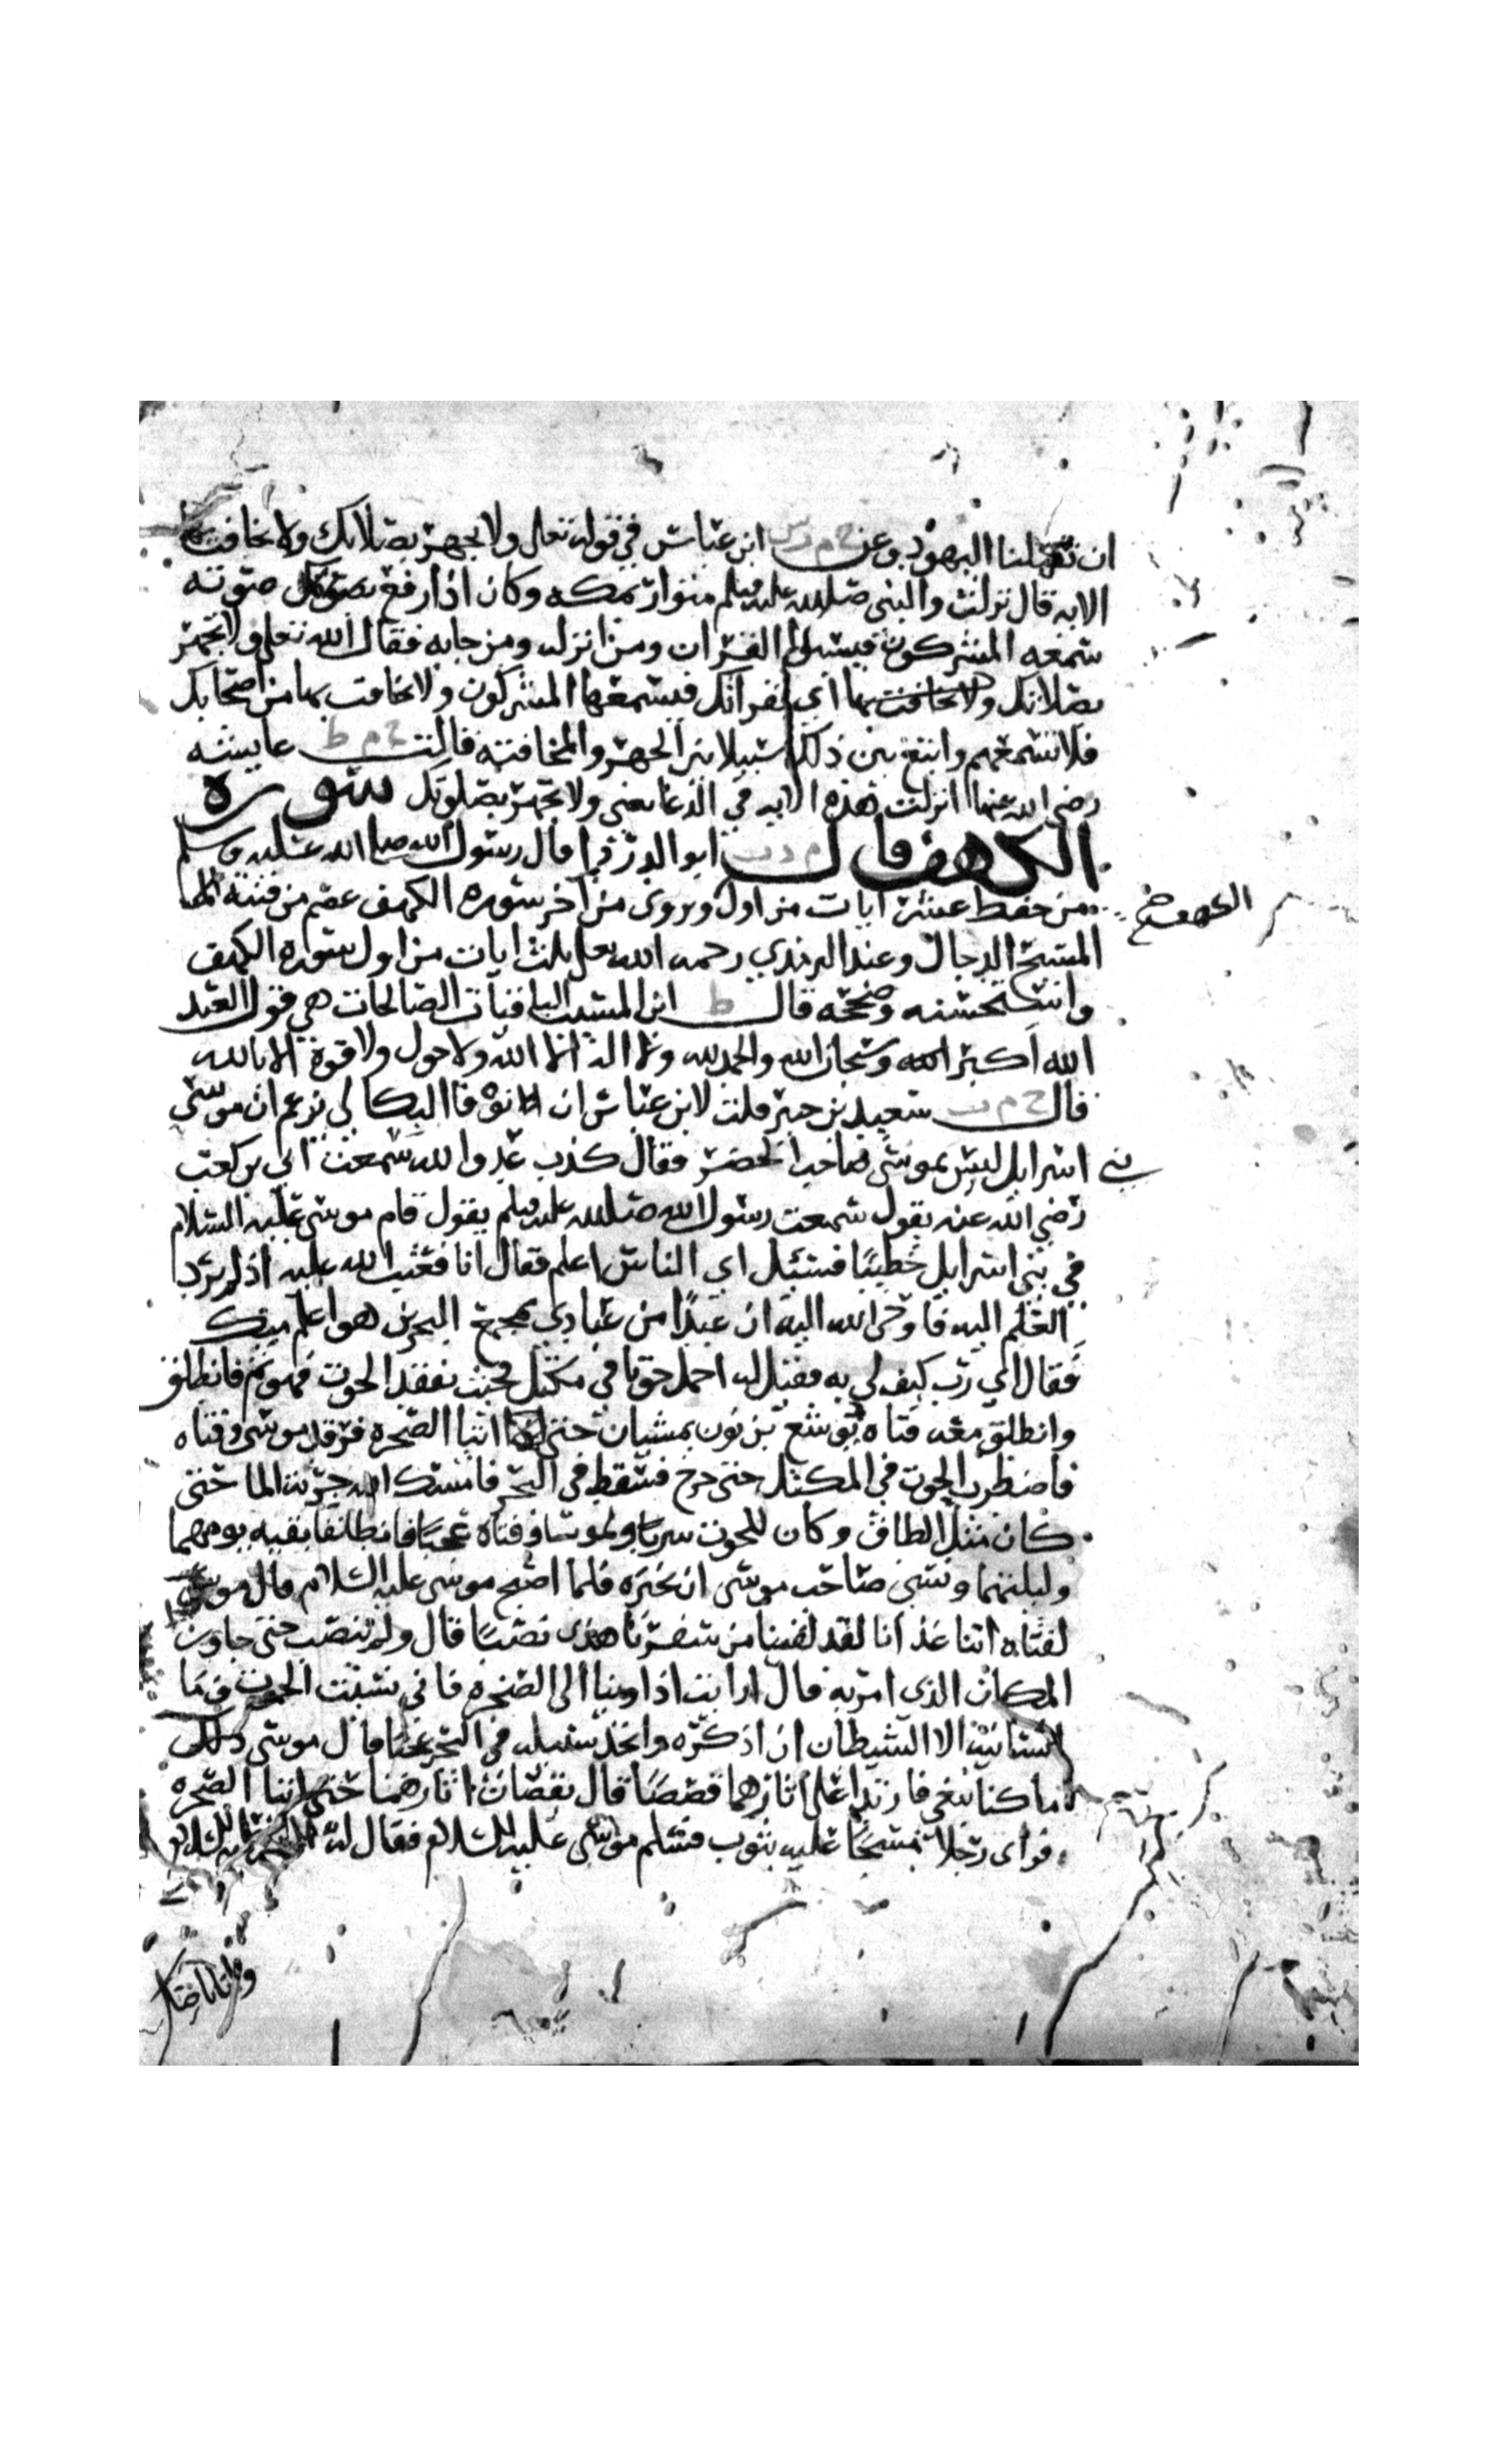 ان تقتلنا اليهود وعن خ م ت س ابن عباس في قوله تعالى ولا تجهر بصلاتك ولا تخافت بها
الايه قال نزلت والنبي صلى الله عليه وسلم متوار بمكه وكان اذا رفع صوته
سمعه المشركون فيسبوا القران ومن انزله ومن جا به فقال الله تعلى ولا تجهر
بصلاتك ولا تخافت بها اي بقرانك فيسمعها المشركون ولا تخافت بها من اصحابك
فلا تسمعهم وابتغ بين ذلك سبيلا بين الجهر والمخافته قالت خ م ط عايشه
رضي الله عنها انزلت هذه الايه في الدعا يعني ولا تجهر بصلوتك سوره
الكهف قال م د ت ابو الدردا قال رسول الله صلى الله عليه وسلم
من حفظ عشر ايات من اول ويروى من اخر سوره الكهف عصم من فتنة
الكهف
المسيح الدجال وعند الترمذي رحمه الله تعلى ثلث ايات من اول سوره الكهف
واستحسنه وصححه قال ط ابن المسيب الباقيات الصالحات هي قول العبد
الله اكبر وسبحان الله والحمد لله ولا اله الا الله ولا حول ولا قوة الا بالله
قال خ م ت سعيد بن جبير قلت لابن عباس ان نوفا البكالي يزعم ان موسى
بني اسرايل ليس بموسى صاحب الخضر فقال كذب عدو الله سمعت ابي بن كعب
رضي الله عنه يقول سمعت رسول الله صلى الله عليه وسلم يقول قام موسى عليه السلام
في بني اسرايل خطيبا فسئل اي الناس اعلم فقال انا فعتب الله عليه اذ لم يرد
العلم اليه فاوحى الله اليه ان عبدا من عبادي بمجمع البحرين هو اعلم منك
فقال اي رب كيف لي به فقيل له احمل حوتا في مكتل فحيث تفقد الحوت فهو ثم فانطلق
وانطلق معه فتاه يوشع بن نون يمشيان حتى اتيا الصخره فرقد موسى وفتاه
فاضطرب الحوت في المكتل حتى خرج فسقط في البحر فامسك الله جرية الما حتى
كان مثل الطاق وكان للحوت سربا ولموسا وفتاه عجبا فانطلقا بقيه يومهما
وليلتهما ونسي صاحب موسى ان يخبره فلما اصبح موسى عليه السلام قال موسى
لفتاه اتنا غدانا لقد لقينا من سفرنا هذا نصبا قال ولم ينصب حتى جاوز
المكان الذي امر به قال ارايت اذ اوينا الى الصخره فاني نسيت الحوت وما
انسانيه الا الشيطان ان اذكره واتخذ سبيله في البحر عجبا قال موسى ذلك
ما كنا نبغي فارتدا على اثارهما قصصا قال يقصان اثارهما حتى اتيا الصخره
فراى رجلا مسجا عليه بثوب فسلم موسى عليه السلام فقال له